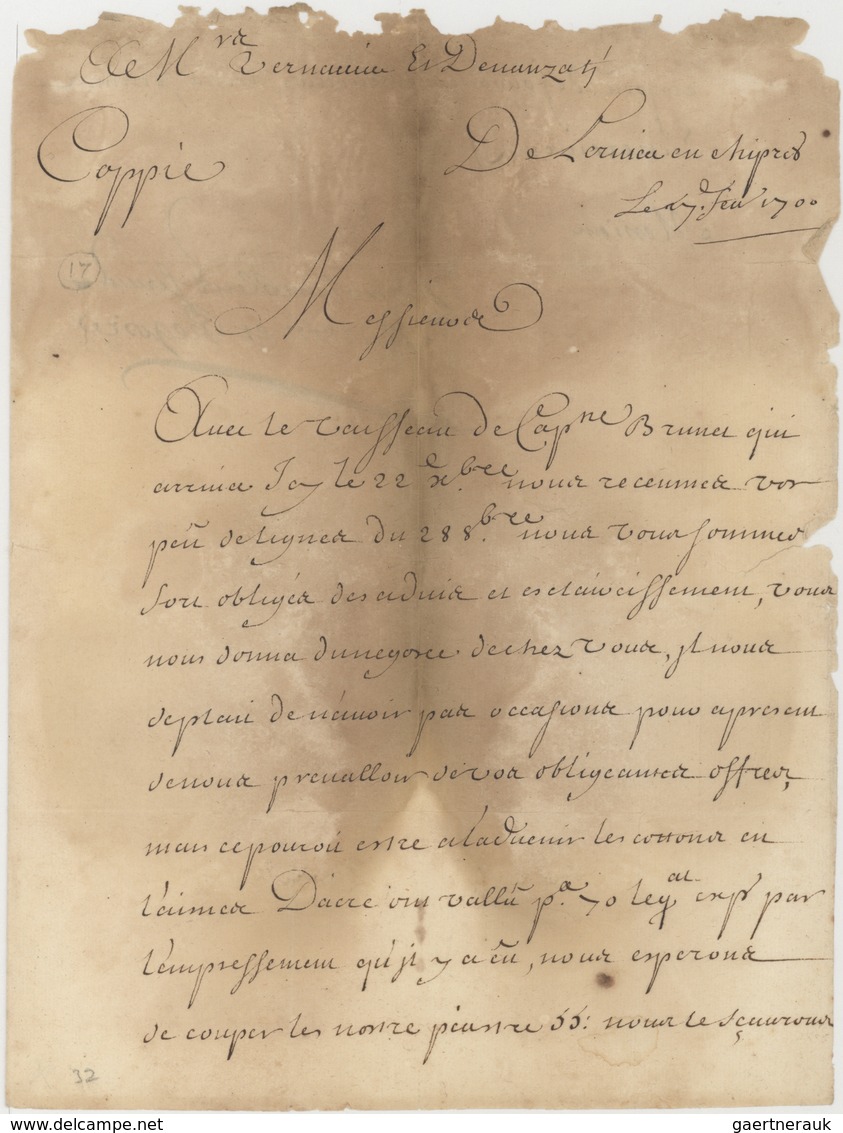 De Mrs Vernaiue Et Denanzatj
Coppie
De Lernica en chipres
Le 17.e feu 1700
17
Messieurs
Auec le vaisseau de Capne Brunet qui
arriua Icy le 22e xbre nous receumes vos
peu de lignes du 28 8bre nous vous sommes
fort obligés des aduis et esclaircissement, vous
nous donna du negosce de chez vous, jl nous
deplait de n'auoir pas occasions pour apresent
de nous preualloir de vos obligeantes offres,
mais ce pouroit estre a laduenir les cottons en
laines Dacre ont vallu pa. 70 le qal exps par
lempressement qu'jl y a eu, nous esperons
de couper les nostre piastre 55: nous le sçaurons
32
www.delcampe.net
gaertnerauk